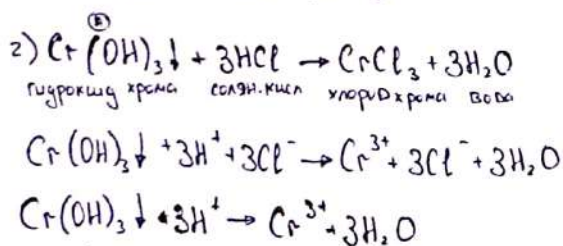 В
2) Cr(OH)₃↓ + 3HCl → CrCl₃ + 3H₂O
гидроксид хрома солян. кисл хлорид хрома вода
Cr(OH)₃↓ + 3H⁺ + 3Cl⁻ → Cr³⁺ + 3Cl⁻ + 3H₂O
Cr(OH)₃↓ + 3H⁺ → Cr³⁺ + 3H₂O